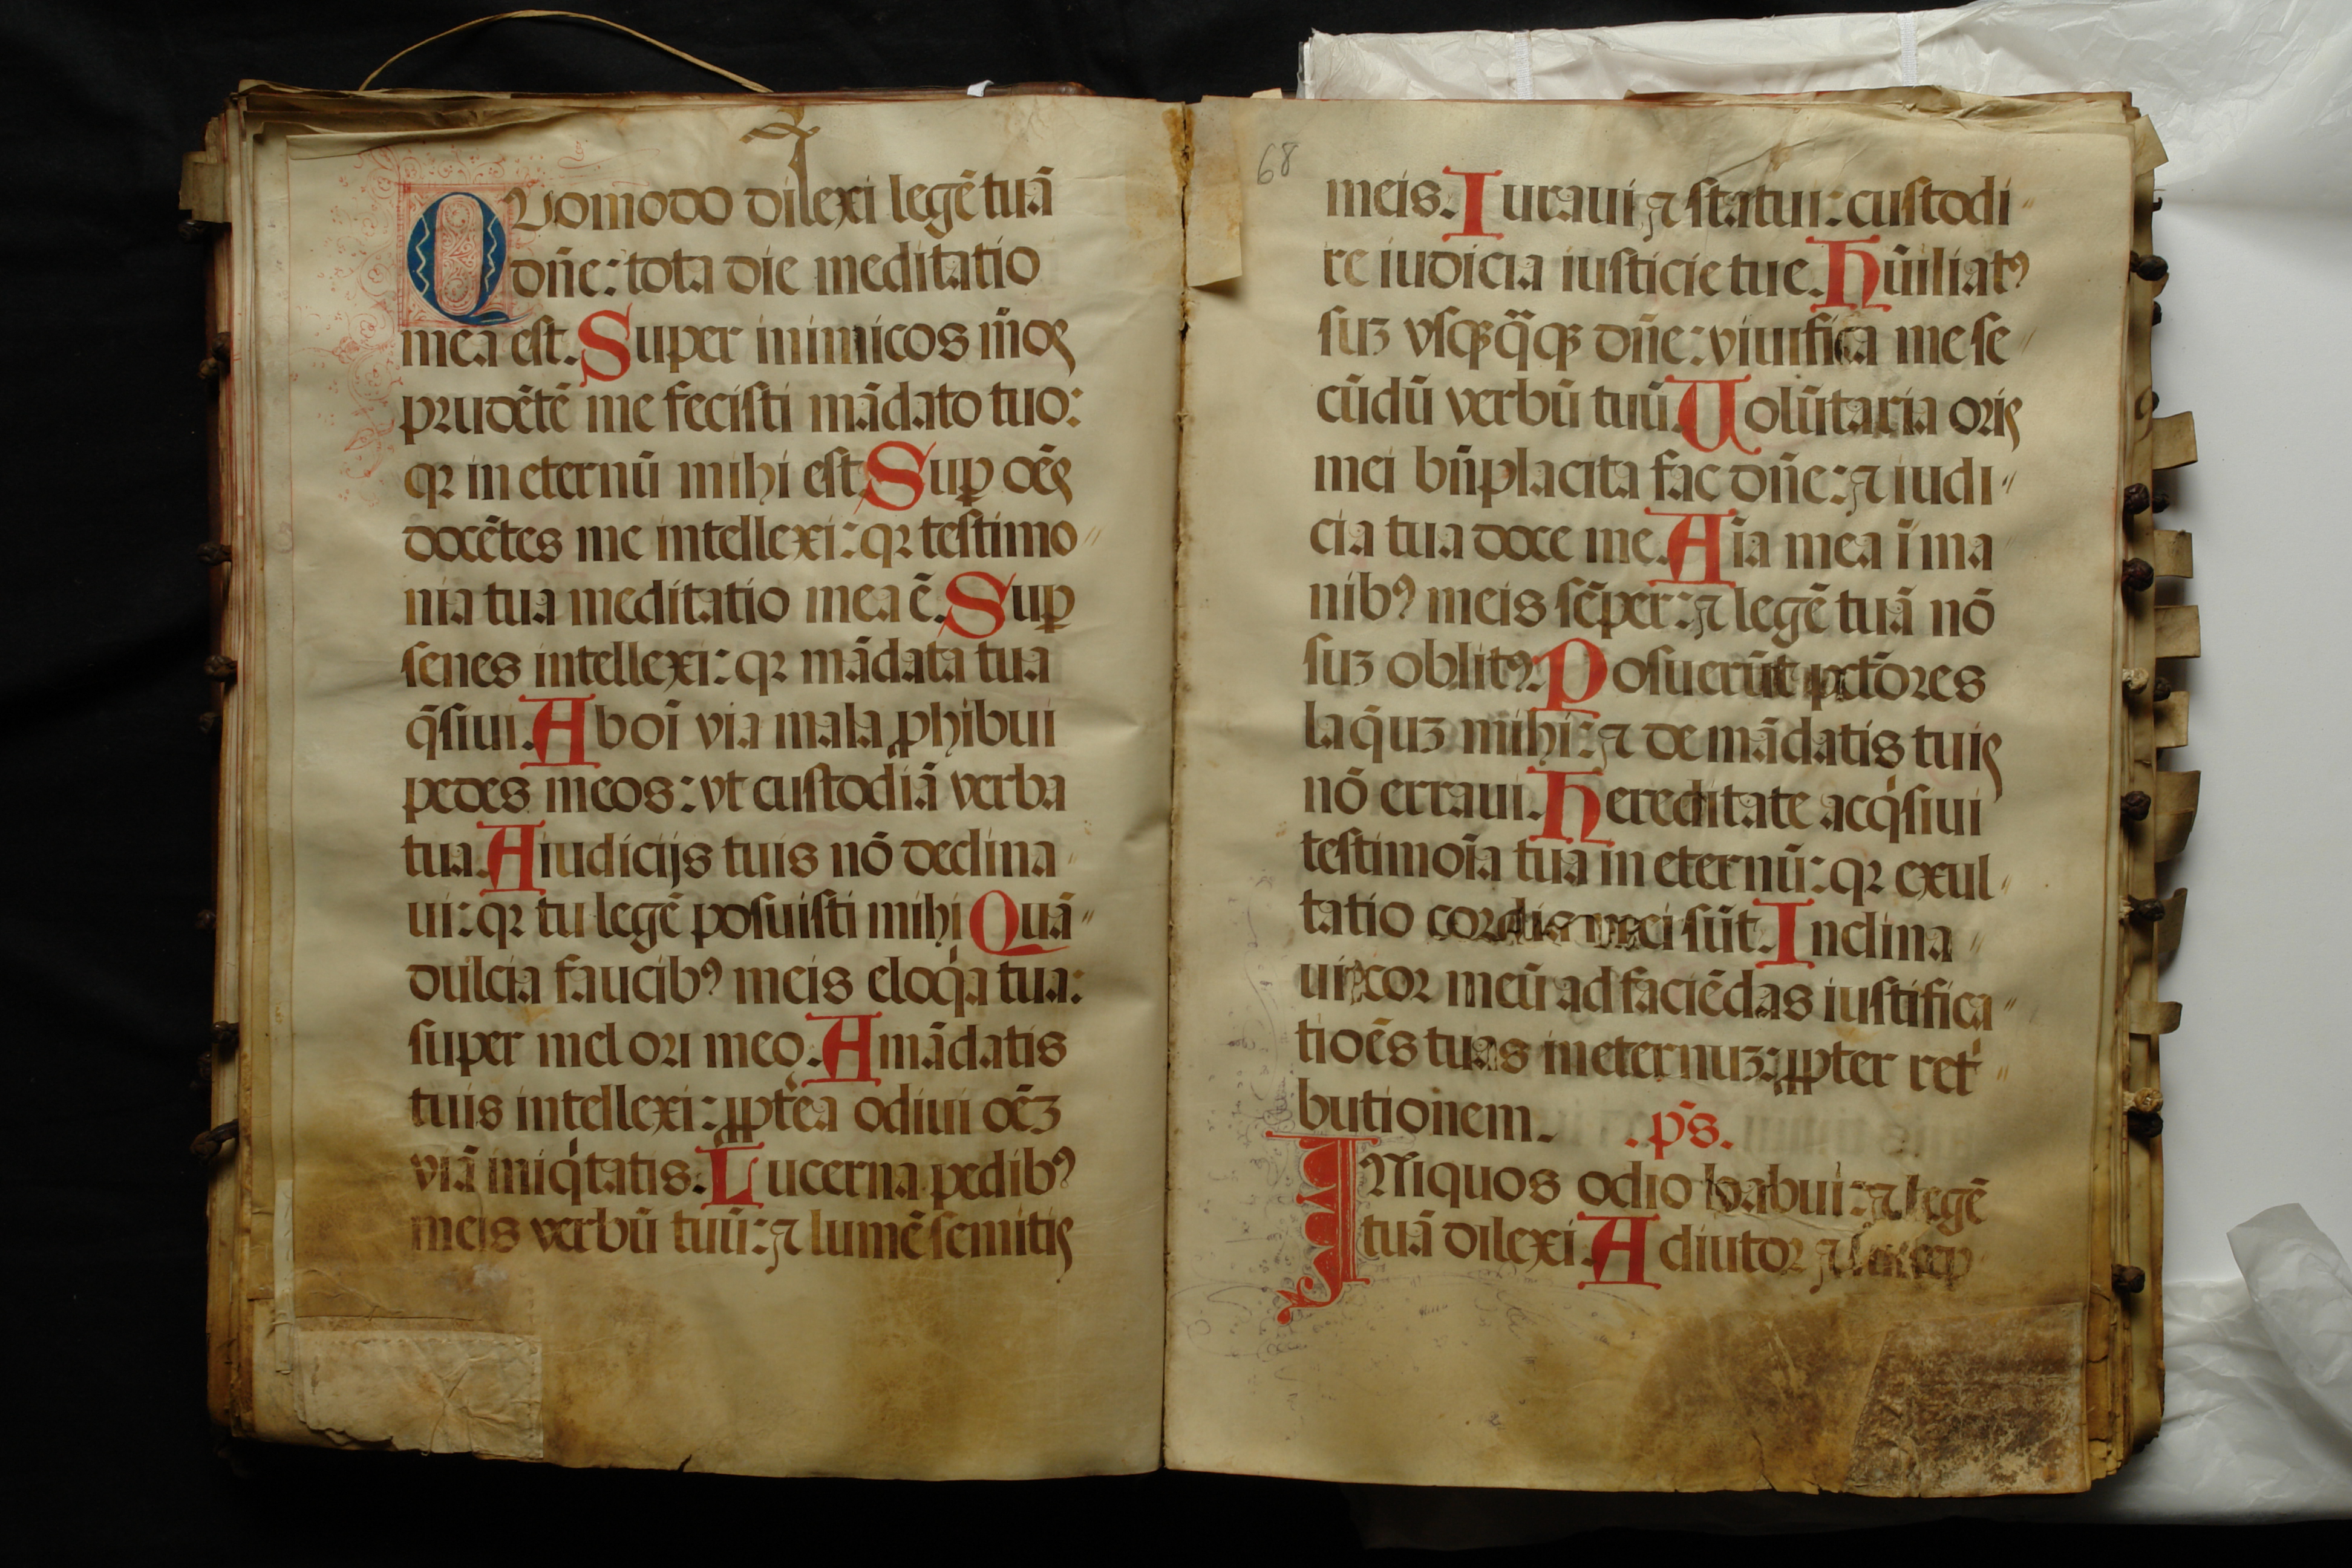 Quomodo dilexi legē tuā
dñe: tota die meditatio
mea est. Super inimicos m̄os
prudētē me fecisti mādato tuo:
qꝛ in eternū mihi est Suꝑ oēs
docētes me intellexi: qꝛ testimo〃
nia tua meditatio mea ē. Suꝑ
senes intellexi: qꝛ mādata tua
q̄siui. Ab oī via mala ꝓhibui
pedes meos: vt custodiā verba
tua. A iudicijs tuis nō declina〃
ui: qꝛ tu legē posuisti mihi Quā〃
dulcia faucibꝰ meis eloq̇a tua:
super mel ori meo. A mādatis
tuis intellexi: ꝓpt̕ea odiui oēꝫ
viā iniq̇tatis. Lucerna pedibꝰ
meis verbū tuū: ⁊ lumē semitis
68
meis. Iuraui ⁊ statui: custodi〃
re iudicia iusticie tue. Hūiliatꝰ
suꝫ vsqꝫq̄qꝫ dñe: viuifica me se〃
cūdū verbū tuū. Volūtaria oris
mei bn̄placita fac dñe: ⁊ iudi〃
cia tua doce me. Aīa mea ī ma
nibꝰ meis sēper: ⁊ legē tuā nō
suꝫ oblitꝰ. Posuerūt pctōres
laq̄uꝫ mihi: ⁊ de mādatis tuis
nō erraui. Hereditate acq̇siui
testimoīa tua in eternū: qꝛ exul〃
tatio cordis mei sūt. Inclina〃
ui cor meū ad faciēdas iustifica〃
tioēs tuas in eternuꝫ: ꝓpter ret̕〃
butionem. .ps̄.
INiquos odio habui: ⁊ legē
tuā dilexi. Adiutor ⁊